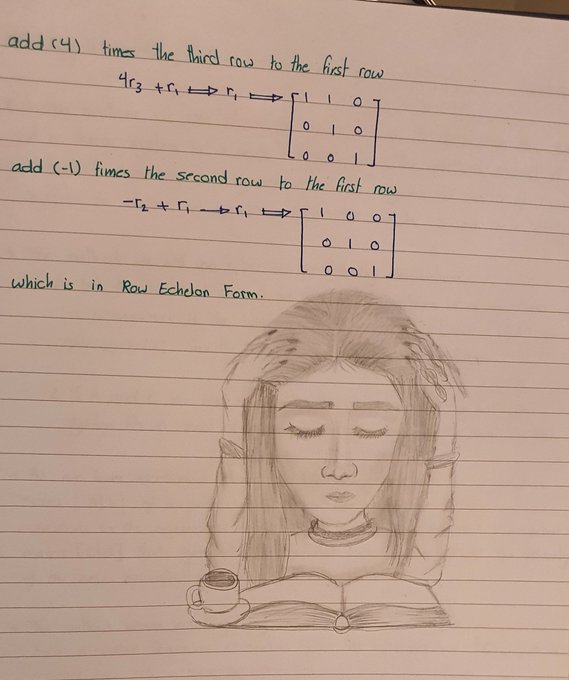 add (4) times the third row to the first row
4r₃ + r₁ ⟹ r₁ ⟹ [ 1 1 0
0 1 0
0 0 1 ]
add (-1) times the second row to the first row
-r₂ + r₁ → r₁ ⟹ [ 1 0 0
0 1 0
0 0 1 ]
which is in Row Echelon Form.